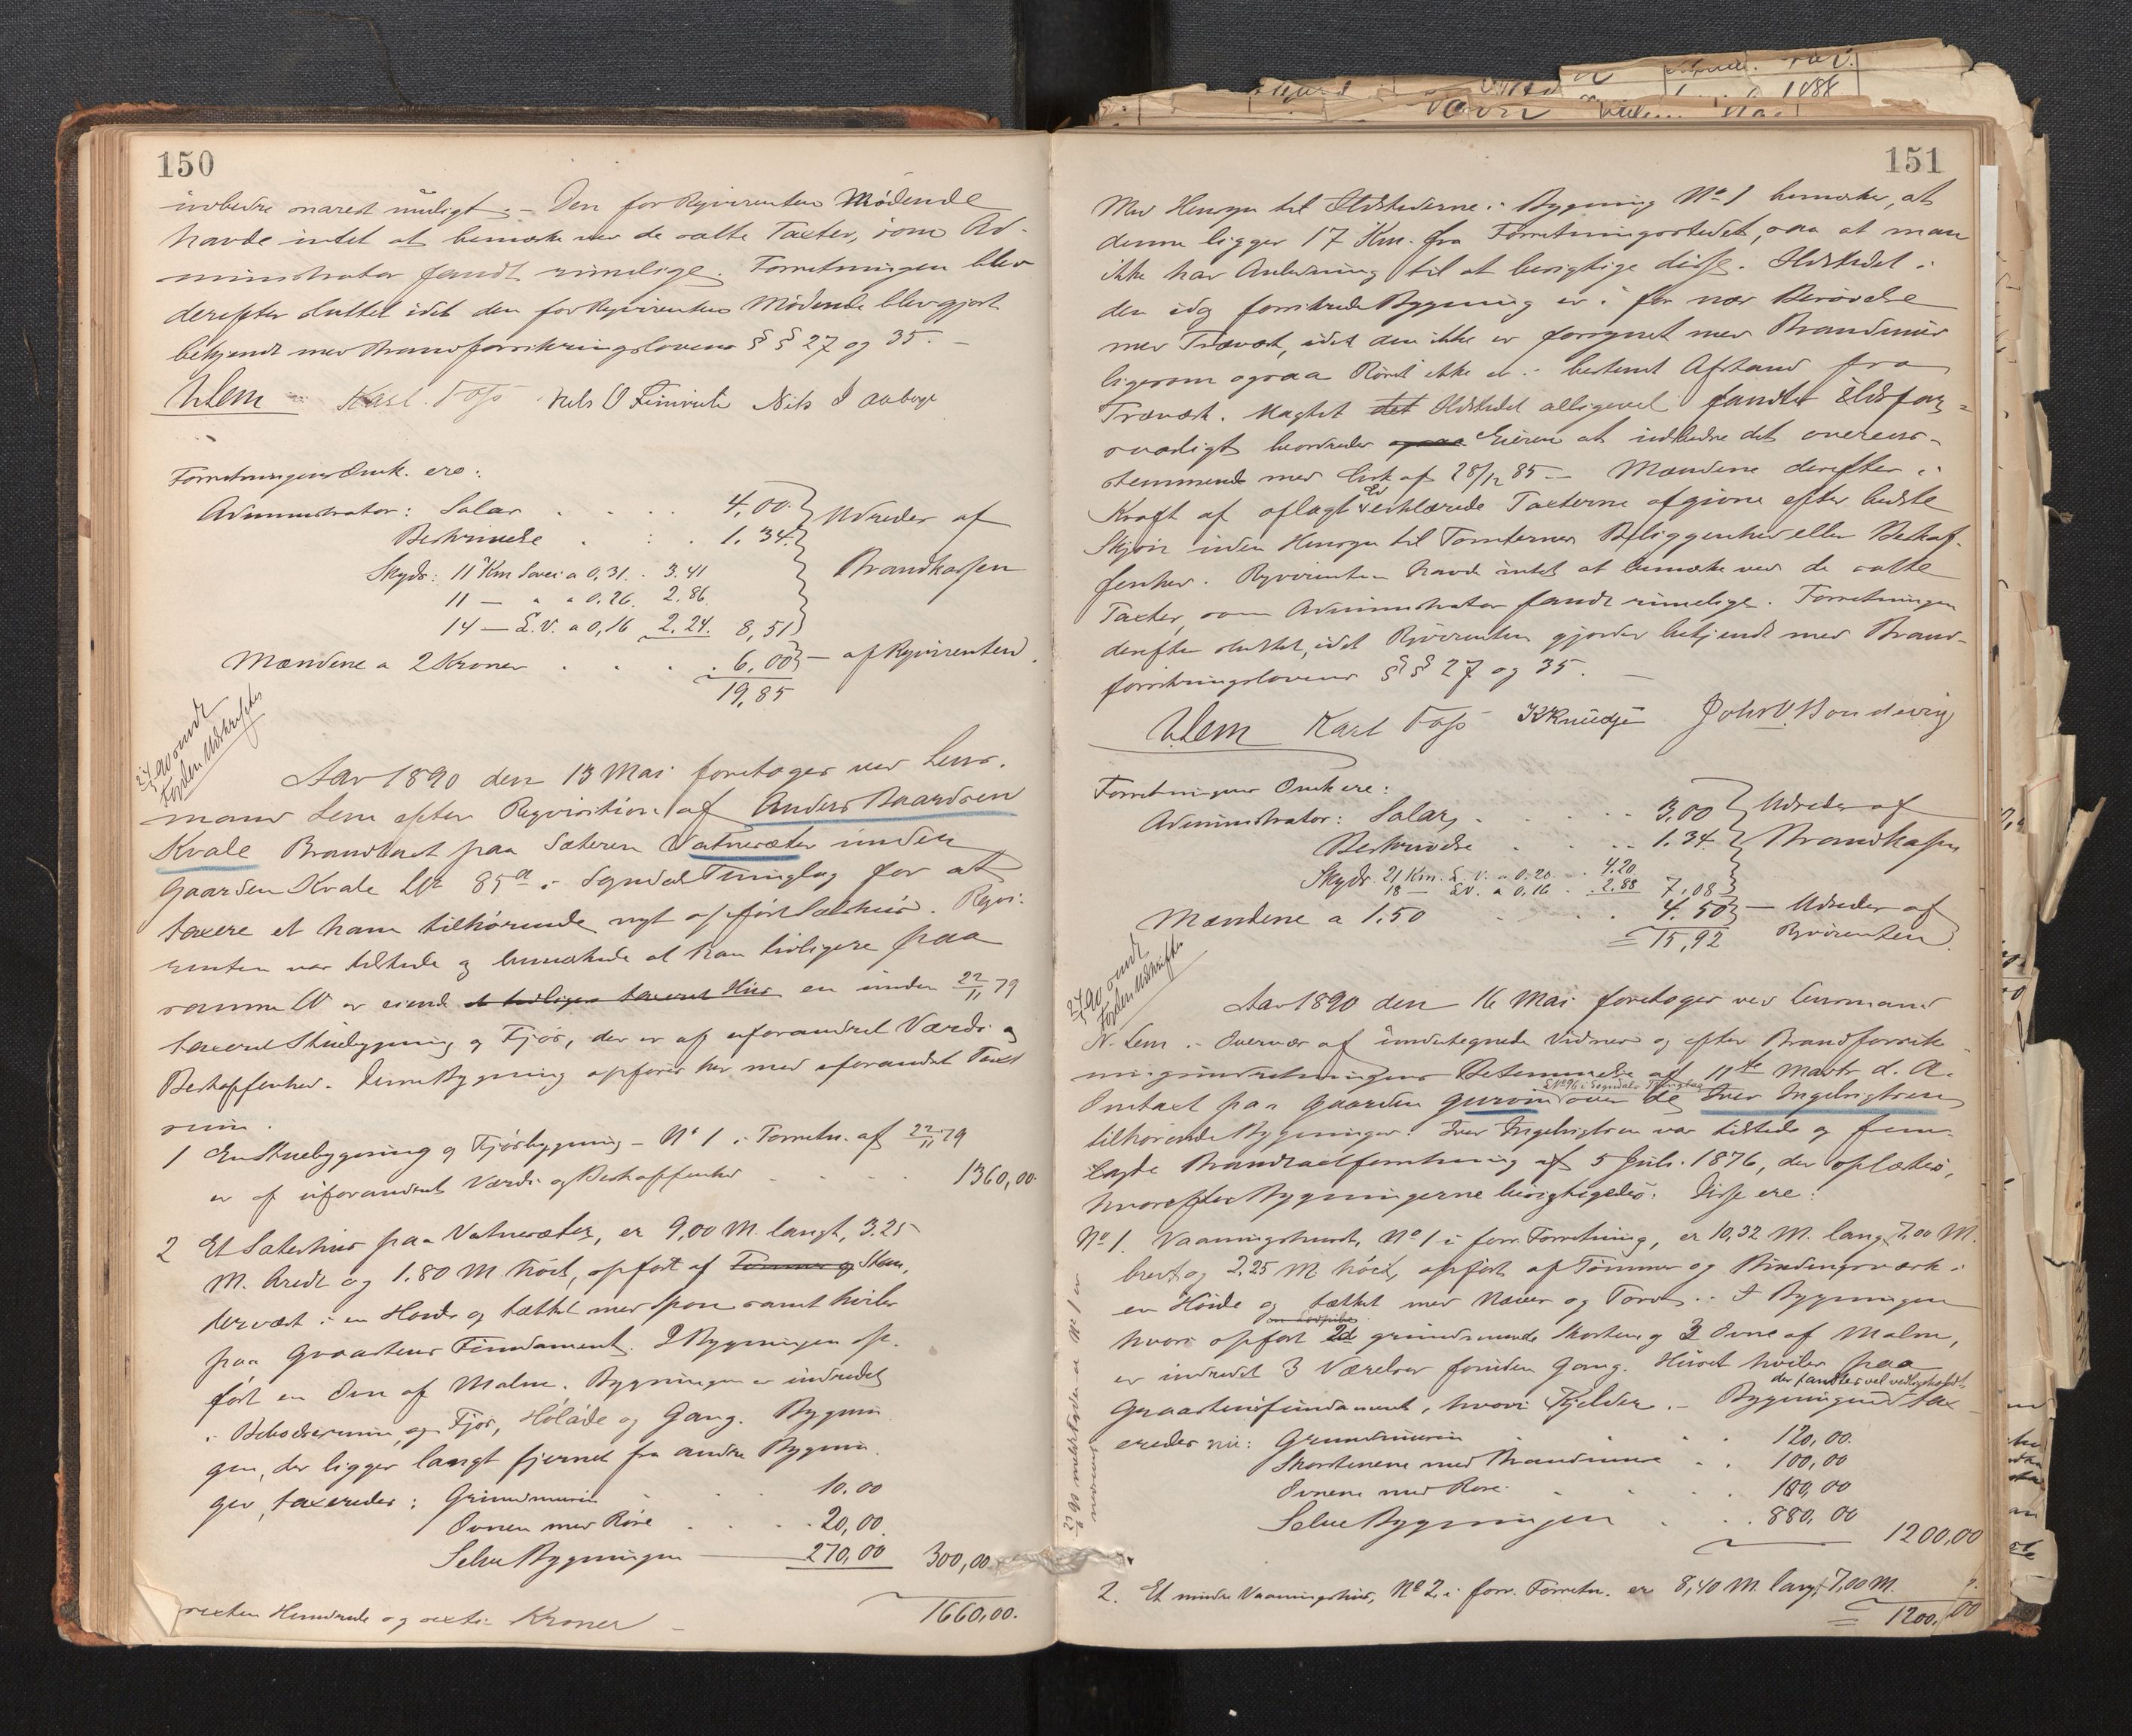 150
udbedre snarest muligt. – Den for Rqvirenten Mødende
havde intet at bemærke ved de satte Taxter, som Ad-
ministrator fandt rimelige. Forretningen blev
derefter sluttet idet den for Rqvirenten Mødende blev gjort
bekjendt med Brandforsikringslovens §§ 27 og 35. –
NLem Karl Foss Nils O Nils J Aaberge
Forretningens Omk. ere:
Administrator: Salar . . . 4,00. Udreder af
Beskrivelse . . . 1.34. Brandkassen
Skyds: 11 Km a 0,31. 3.41
11 — " " a 0.26. 2.86.
14 — L.V. a 0,16 2.24. 8,51
Mændene a 2 Kroner . . . 6,00 – af Rqvirenten.
19,85
Aar 1890 den 13 Mai foretoges ved Lens-
mand Lem efter Rqvisition af Anders Baardsen
Kvale Brandtaxt paa Sæteren Vatnesæter under
Gaarden Kvale LN 85a i Sogndal Thinglag for at
taxere et ham tilhørende nyt opført Sælshus. Rqvi-
renten var tilstede og bemærkede at han tidligere paa
samme LN er eiende et tidligere taxeret Hus en under 22/11 79
taxeret Stuebygning og Fjøs, der er af uforandret Værdi og
Beskaffenhed. Denne Bygning opføres her med uforandret Taxt
som.
1 En Stuebygning og Fjøsbygning – No 1 i Forretn. af 22/11 79
er af uforandret Værdi og Beskaffenhed . . . 1360,00.
2 Et Sæterhus paa Vatnesæter, er 9,00 M. langt, 3.25
M. bredt og 1.80 M høit, opført af Tømmer og Sten,
i en Høide og tækket med Spon samt hviler
paa Graastens Fundament. I Bygningen op-
ført en Ovn af Malm. Bygningen er indredet
i Beboelsesrum, og Fjøs, Hølade og Gang. Bygnin-
gen, der ligger langt fjernet fra andre Bygnin-
ger, taxeredes: Grundmuren . . . 10.00
Ovnen med Røre . . . 20,00.
Selve Bygningen — 270,00 300,00
sexten Hundrede og sexti Kroner – 1660,00.
151
Med Hensyn til Ildstederne i Bygning No 1 bemærkes, at
denne ligger 17 Km. fra Forretningsstedet, saa at man
ikke har Anledning til at besigtige disse. Ildstedet i
den idag forsikrede Bygning er i for nær Berørelse
med Træværk, idet den ikke er forsynet med Brandmur
ligesom ogsaa Røret ikke er i bestemt Afstand fra
Træværk. Uagtet det Ildstedet alligevel fandtes ildsfor-
svarligt beordredes ogsaa Eieren at udbedre det overens-
stemmende med Cirk af 28/12 85 – Mændene derefter i
Kraft af aflagt Ed erklærede Taxterne afgivne efter bedste
Skjøn uden Hensyn til Tomternes Beliggenhed eller Beskaf-
fenhed. Rqvirenten havde intet at bemærke ved de satte
Taxter, som Administrator fandt rimelige. Forretningen
derefter sluttet, idet Rqvirenten gjordes bekjendt med Brand-
forsikringslovens §§ 27 og 35. –
NLem Karl Foss KKnudsen
Forretningens Omk ere:
Administrator: Salar, . . . 3,00 Udredes af
Beskrivelse . . . 1.34. Brandkassen
Skyds. 21 Km. L.V. a 0.20 . . 4.20
18 — L.V. a 0.16 . . 2.88 7,08
Mændene a 1.50 . . . 4.50 – Udredes af
= 15,92 Rqvirenten
Aar 1890 den 16 Mai foretoges ved Lensmand
N. Lem i Overvær af undertegnede Vidner og efter Brandforsik-
ringsindretningens Bestemmelse af 11te Marts d. A.
LNo 96 i Sogndals Thinglag
Omtaxt paa Gaarden Gurvin over de Iver Ingebrigtsen
tilhørende Bygninger. Iver Ingebrigtsen var tilstede og frem-
lagde Brandtaxtforretning af 5 Juli 1876, der oplæstes,
hvorefter Bygningerne besigtigedes. Disse ere:
No 1. Vaaningshuset, No 1 i forr. Forretning, er 10,32 M. lang, 7,00 M.
bred og 2,25 M. høit, opført af Tømmer og Bindingsværk i
en Høide og tækket med Næver og Torv. – I Bygningen
hvori opført 2de grundmurede Skorsten og 3 Ovne af Malm,
er indredet 3 Værelser foruden Gang. Huset hviler paa
der fandtes vel vedligeholdt
Graastensfundament, hvori Kjelder. – Bygningen tax-
eredes nu: Grundmuren . . 120,00.
Skorstenene med Brandmure . . 100,00
Ovnene med Røre . . . 100,00
Selve Bygningen . . 880,00 1200,00
2. Et mindre Vaaningshus, No 2 i forr. Forretn. er 8,40 M. langt, 7,00 M.
= 1200,00